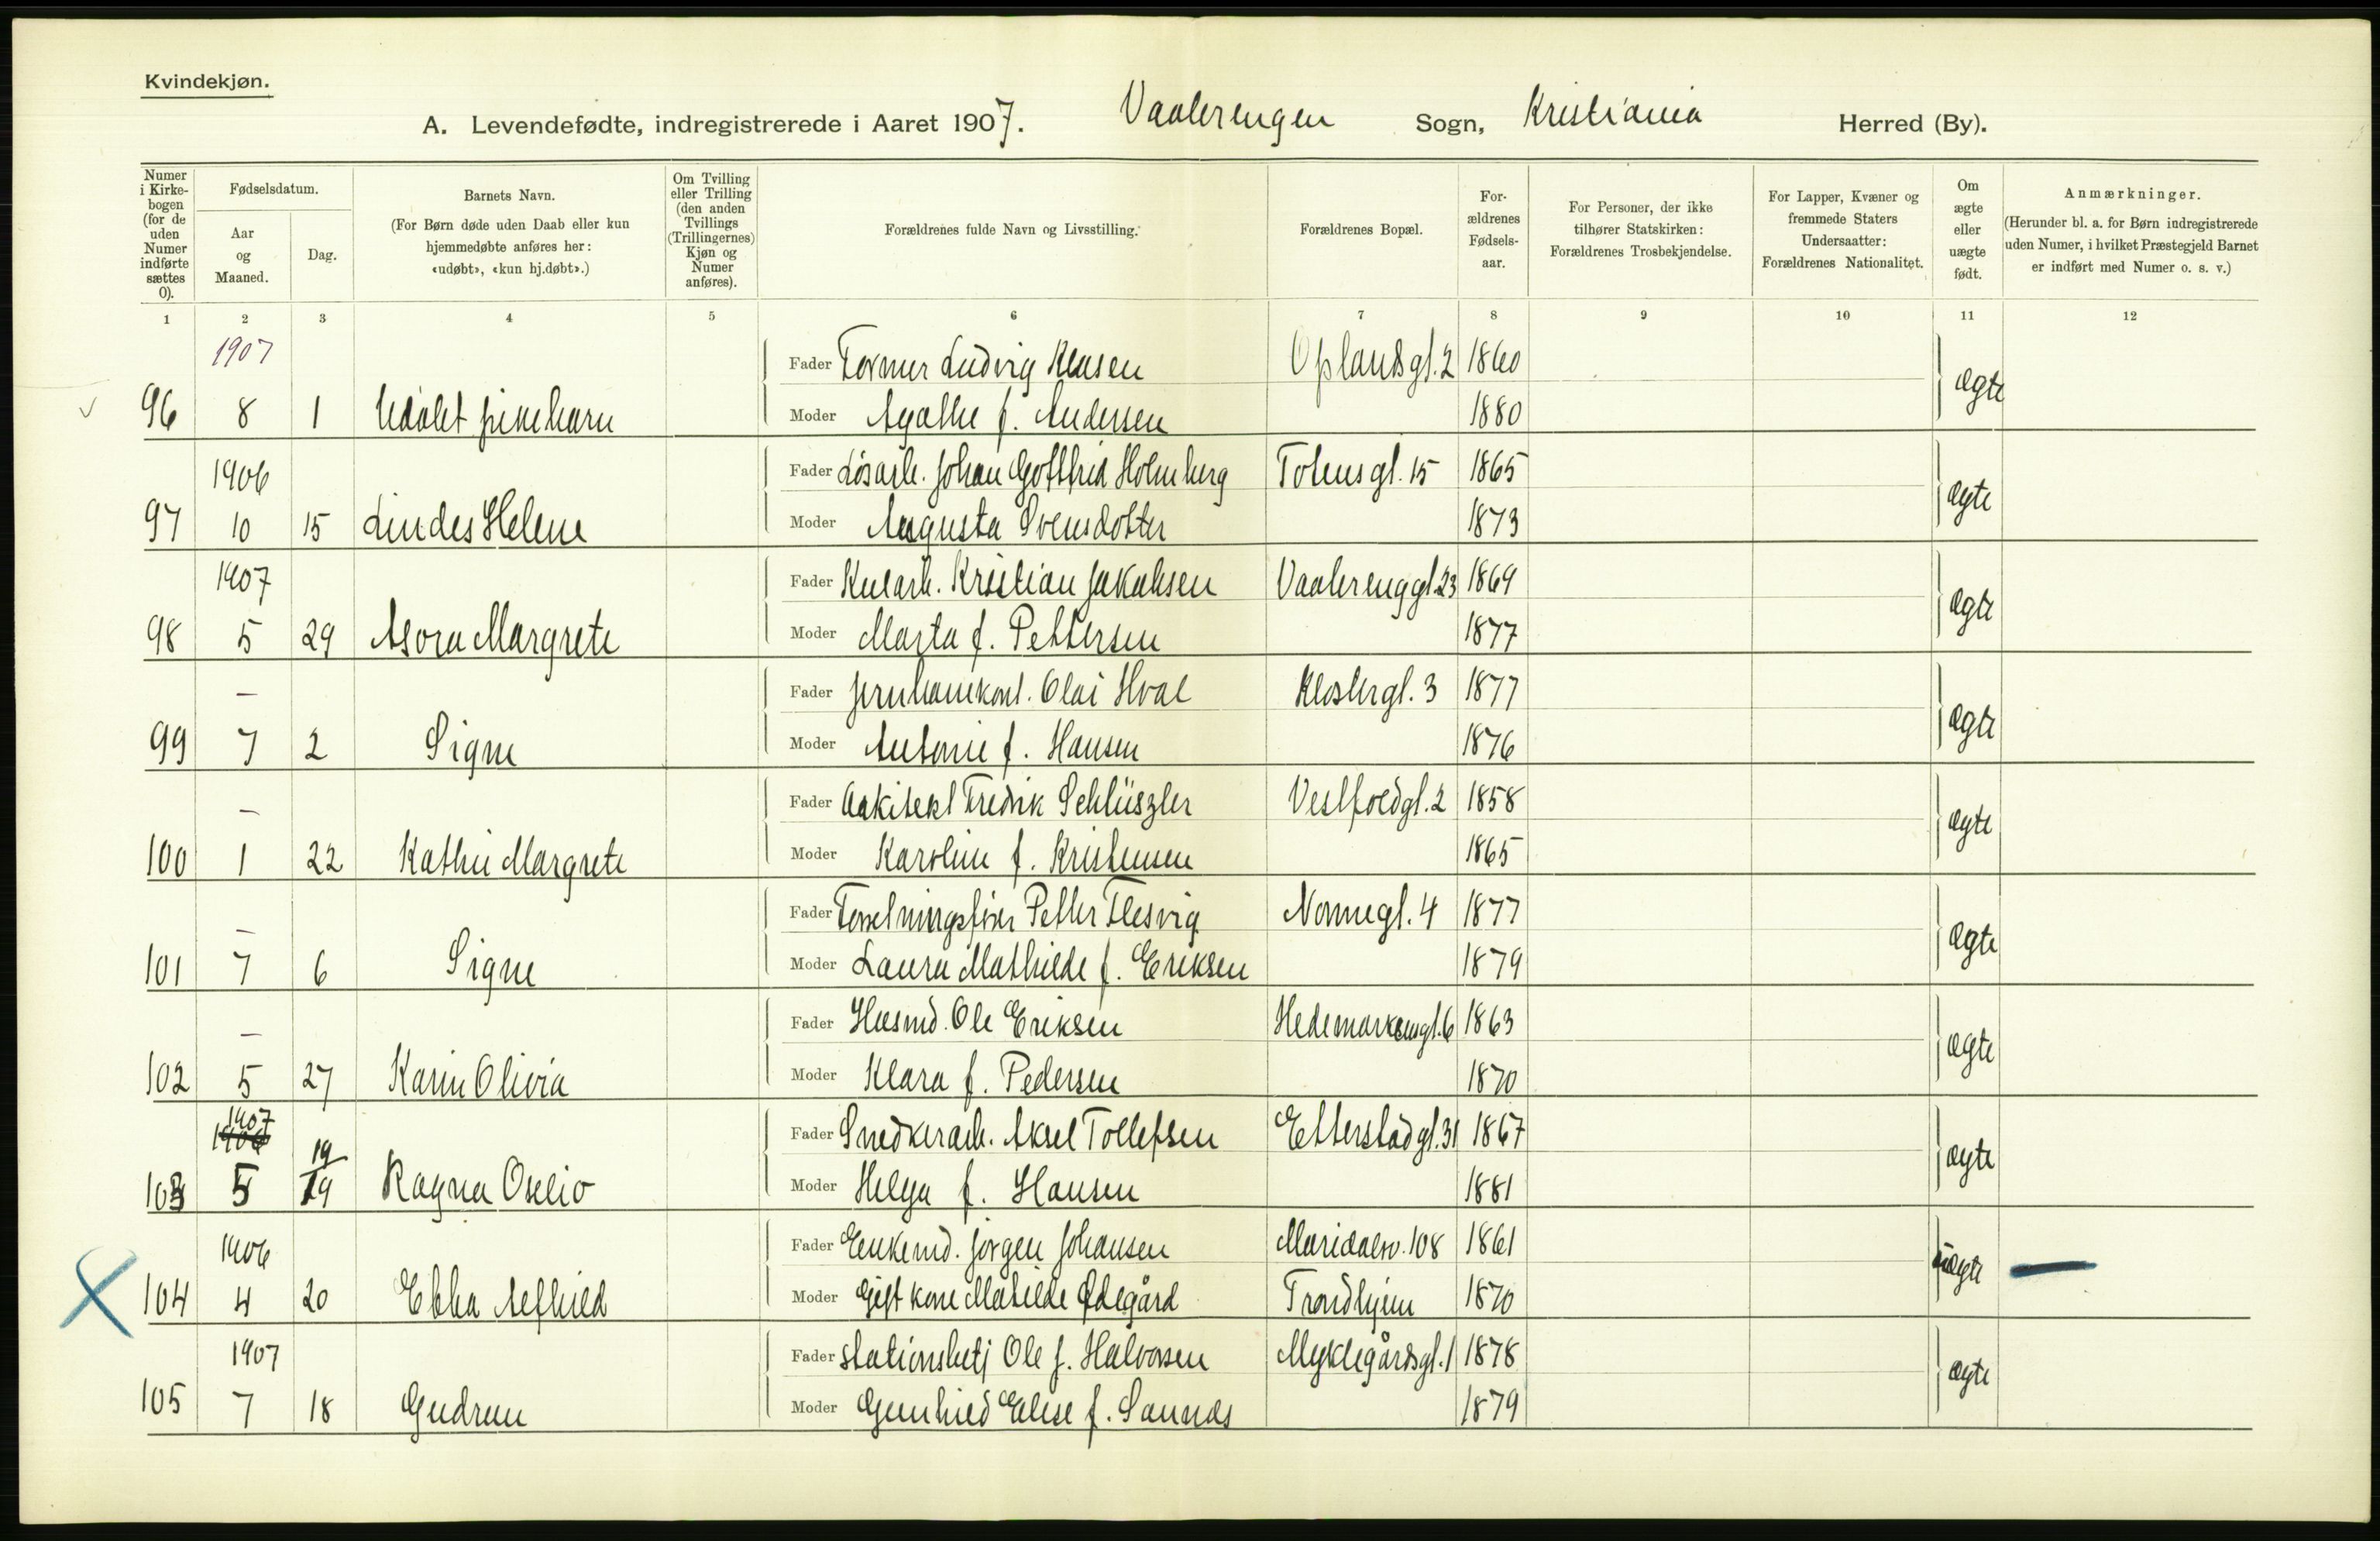 Kvindekjøn.
A. Levendefødte, indregistrerede i Aaret 1907. Vaalerengen Sogn, Kristiania Herred (By).
Numer i Kirkebogen (for de uden Numer indførte sættes 0).
Fødselsdatum.
Aar og Maaned.
Dag.
Barnets Navn.
(For Børn døde uden Daab eller kun hjemmedøbte anføres her: «udøbt», «kun hj.døbt».)
Om Tvilling eller Trilling (den anden Tvillings (Trillingernes) Kjøn og Numer anføres).
Forældrenes fulde Navn og Livsstilling.
Forældrenes Bopæl.
Forældrenes Fødselsaar.
For Personer, der ikke tilhører Statskirken: Forældrenes Trosbekjendelse.
For Lapper, Kvæner og fremmede Staters Undersaatter: Forældrenes Nationalitet.
Om ægte eller uægte født.
Anmærkninger.
(Herunder bl. a. for Børn indregistrerede uden Numer, i hvilket Præstegjeld Barnet er indført med Numer o. s. v.)
1 2 3 4 5 6 7 8 9 10 11 12
1907 Fader Former Ludvig Klausen Oplandsgt. 2 1860
96 8 1 Udøbt pikebarn Moder Agathe f. Andersen 1880 ægte
1906 Fader Løsarb. Johan Gottfrid Holmberg Totensgt. 15 1865
97 10 15 Lindes Helene Moder Augusta Svensdotter 1873 ægte
1907 Fader Kularb. Kristian Jakobsen Vaalerenggt. 23 1869
98 5 29 Asora Margrete Moder Marta f. Pettersen 1877 ægte
— Fader Jernbanekont. Olai Hval Klostergt. 3 1877
99 7 2 Signe Moder Antonie f. Hansen 1876 ægte
— Fader Arkitekt Fredrik Schlüszler Vestfoldgt. 2 1858
100 1 22 Kathie Margrete Moder Karoline f. Kristensen 1865 ægte
— Fader Petter Flesvig Nonnegt. 4 1877
101 7 6 Signe Moder Laura Mathilde f. Eriksen 1879 ægte
— Fader Husmd. Ole Eriksen Hedemarkensgt. 6 1863
102 5 27 Karin Olivia Moder Klara f. Pedersen 1870 ægte
1907 1906 Fader Snedkerarb. Aksel Tollefsen Etterstadgt. 31 1867
103 5 19 19 Ragna Oselio Moder Helga f. Hansen 1881 ægte
1906 Fader Enkemd. Jørgen Johansen Maridalsv. 108 1861
104 4 20 Ebba Alfhild Moder Gift kone Matilde Ødegård Trondhjem 1870 uægte —
1907 Fader Stationsbetj Ole J. Halvorsen Myklegårdsgt. 1 1878
105 7 18 Gudrun Moder Gunhild Elise f. 1879 ægte